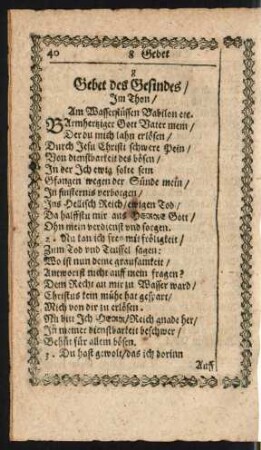 40 8 Gebet
8
Gebet des Gesindes/
Im Thon/
Am Wasserflüssen Babilon etc.
BArmhertziger Gott Vater mein/
Der du mich lahn erlösen/
Durch Jesu Christi schwere Pein/
Von dienstbarkeit des bösen/
In der Ich ewig solte sein
Gfangen wegen der Sünde mein/
In finsternis verborgen/
Ins Hellisch Reich/ ewigen Tod/
Da halffstu mir aus HERRE Gott/
Ohn mein verdienst und sorgen.
2. Nu kan ich frey mit fröligkeit/
Zum Tod und Teuffel sagen:
Wo ist nun deine grausamkeit/
Antworst nicht auff mein fragen?
Dem Recht an mir zu Wasser ward/
Christus kein mühe hat gespart/
Mich von dir zu erlösen.
Nu bin Ich HERR/ Reich gnade her/
In meiner dienstbarkeit beschwer/
Behüt für allem bösen.
3. Du hast gewolt/ das ich dorinn
Auff